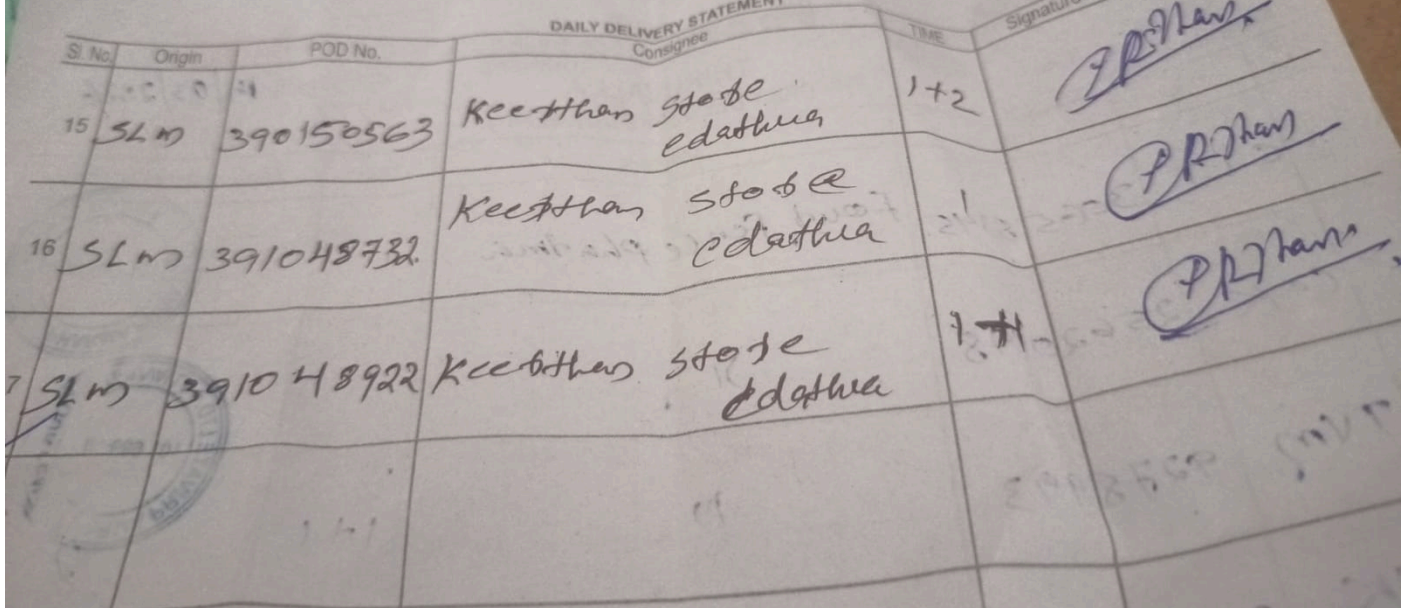 DAILY DELIVERY STATEMENT
Sl. No. Origin POD No. Consignee TIME Signature
15 SLM 390150563 Keerthan Store 1+2
edathua
16 SLM 391048732. Keerthan Store 1
edathua
7 SLM 391048922 Keerthan Store 1+1
edathua